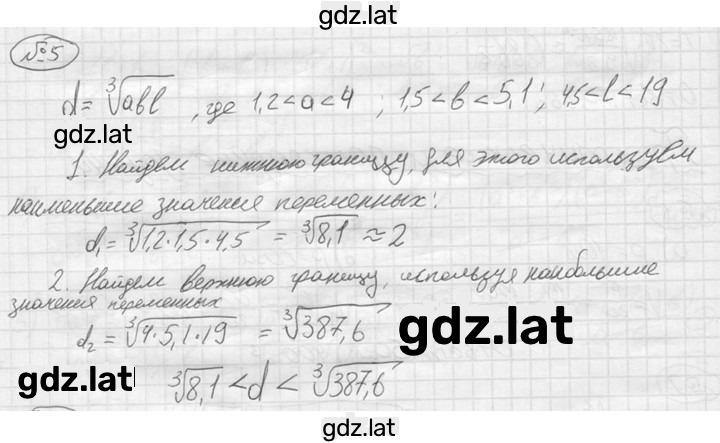 gdz.lat
№5
d = ∛abl , где 1,2<a<4 ; 1,5<b<5,1 ; 4,5<l<19
gdz.lat
1. Найдем нижнюю границу, для этого используем
наименьшие значения переменных:
d₁ = ∛1,2·1,5·4,5 = ∛8,1 ≈ 2
2. Найдем верхнюю границу, используя наибольшие
значения переменных
d₂ = ∛4·5,1·19 = ∛387,6
gdz.lat
gdz.lat
∛8,1 < d < ∛387,6
gdz.lat